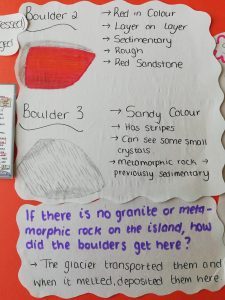 Boulder 2
→ Red in Colour
→ Layer on layer
→ Sedimentary
→ Rough
→ Red Sandstone
Boulder 3
→ Sandy Colour
→ Has stripes
→ Can see some small
crystals
→ metamorphic rock →
previously sedimentary
If there is no granite or meta-
morphic rock on the island, how
did the boulders get here?
→ The glacier transported them and
when it melted, deposited them here